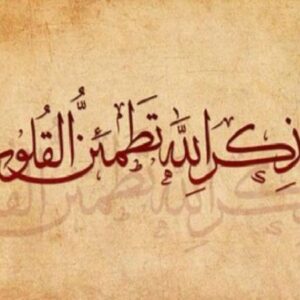 ذِكرِ اللَّهِ تَطمَئِنُّ القُلُو